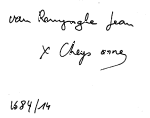 van Renynghe Jean
x Cheys Anne
1684/14